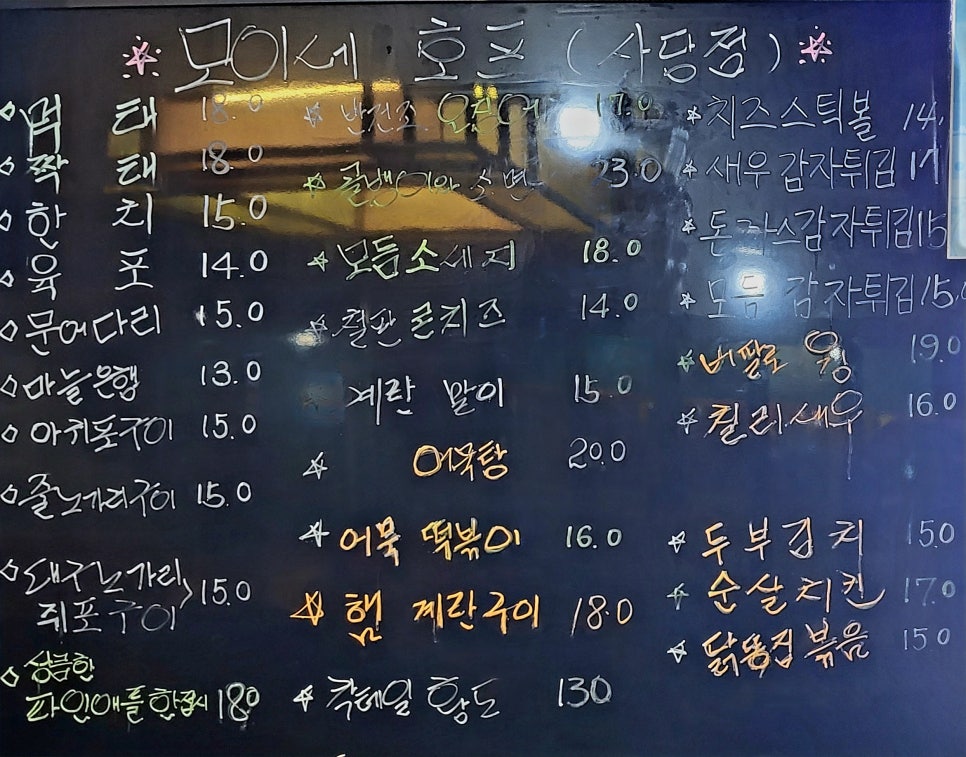 모이세 호프 (사당점)
먹태 18.0
짝태 18.0
한치 15.0
육포 14.0
문어다리 15.0
마늘은행 13.0
아귀포구이 15.0
줄노가리구이 15.0
대구노가리
쥐포구이 15.0
상큼한
파인애플한접시 18.0
반건조 오징어 17.0
골뱅이와 소면 23.0
모듬소세지 18.0
철판콘치즈 14.0
계란말이 15.0
어묵탕 20.0
어묵 떡볶이 16.0
햄 계란구이 18.0
칵테일 황도 13.0
치즈스틱볼 14.
새우감자튀김 17
돈까스감자튀김 15
모듬 감자튀김 15.0
버팔로 윙 19.0
칠리새우 16.0
두부김치 15.0
순살치킨 17.0
닭똥집볶음 15.0